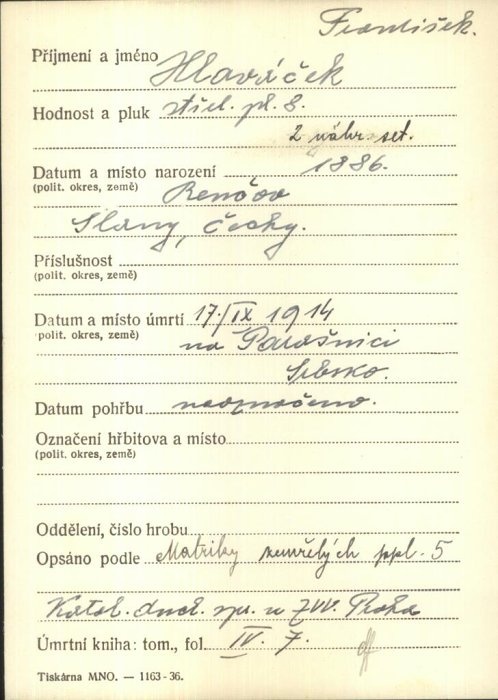 František.
Příjmení a jméno Hlaváček
Hodnost a pluk střel. pl. 8.
2 náhr. set.
Datum a místo narození 1886.
(polit. okres, země) Renčov
Slaný, Čechy.
Příslušnost
(polit. okres, země)
Datum a místo úmrtí 17./IX 1914
(polit. okres, země) na Parašnici
Srbsko.
Datum pohřbu neoznačeno.
Označení hřbitova a místo
(polit. okres, země)
Oddělení, číslo hrobu
Opsáno podle Matriky zemřelých ppl. 5
Katol. duch. spr. u ZVV. Praha
Úmrtní kniha: tom., fol. IV. 7.
Tiskárna MNO. — 1163-36.